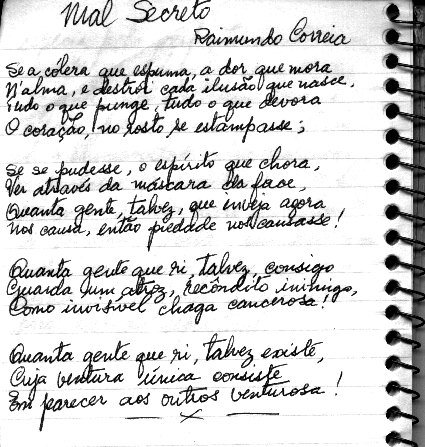 Mal Secreto
Raimundo Correia
Se a cólera que espuma, a dor que mora
N'alma, e destrói cada ilusão que nasce,
Tudo o que punge, tudo o que devora
O coração, no rosto se estampasse;
Se se pudesse, o espírito que chora,
Ver através da máscara da face,
Quanta gente, talvez, que inveja agora
Nos causa, então piedade nos causasse!
Quanta gente que ri, talvez, consigo
Guarda um atroz, recôndito inimigo,
Como invisível chaga cancerosa!
Quanta gente que ri, talvez existe,
Cuja ventura única consiste
Em parecer aos outros venturosa!